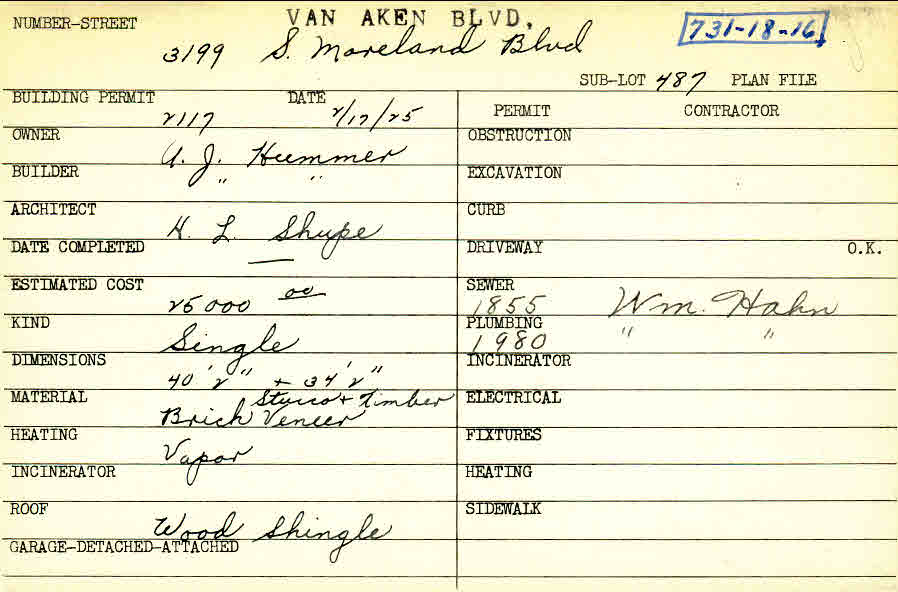 VAN AKEN BLVD,
NUMBER-STREET 3199 S. Moreland Blvd 731-18-16
SUB-LOT 487 PLAN FILE
BUILDING PERMIT 2117 DATE 2/17/25
PERMIT CONTRACTOR
OWNER A. J. Hummer
OBSTRUCTION
BUILDER " "
EXCAVATION
ARCHITECT H. L. Shupe
CURB
DATE COMPLETED —
DRIVEWAY O.K.
ESTIMATED COST 25000 00
SEWER 1855 Wm. Hahn
KIND Single
PLUMBING 1980 " "
DIMENSIONS 40' 2" + 34' 2"
INCINERATOR
MATERIAL Stucco + Timber
Brick Veneer
ELECTRICAL
HEATING Vapor
FIXTURES
INCINERATOR
HEATING
ROOF Wood Shingle
SIDEWALK
GARAGE-DETACHED-ATTACHED